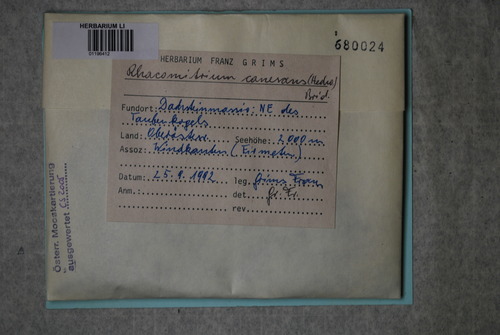 HERBARIUM LI
680024
HERBARIUM FRANZ GRIMS
Rhacomitrium canescens (Hedw)
Brid.
Fundort: Dachsteinmassiv: NE des
Taubenkogels
Land: Oberösterr. Seehöhe: 2000m
Assoz: Windkanten (Firmeten)
Datum: 25.9.1992 leg. Grims Franz
Anm.: det. Gr. Fr.
rev.
Österr. Mooskartierung
ausgewertet